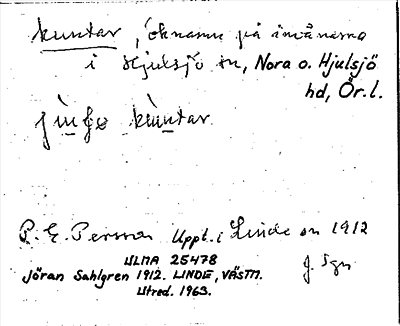 kuntar, öknamn på invånarna
i Hjulsjö sn, Nora o. Hjulsjö
hd, Ör.l.
kuntar
P. E. Persson Uppt. i Linde sn 1912
ULMA 25478
Jöran Sahlgren 1912. LINDE, VÄSTM.
Utred. 1963.